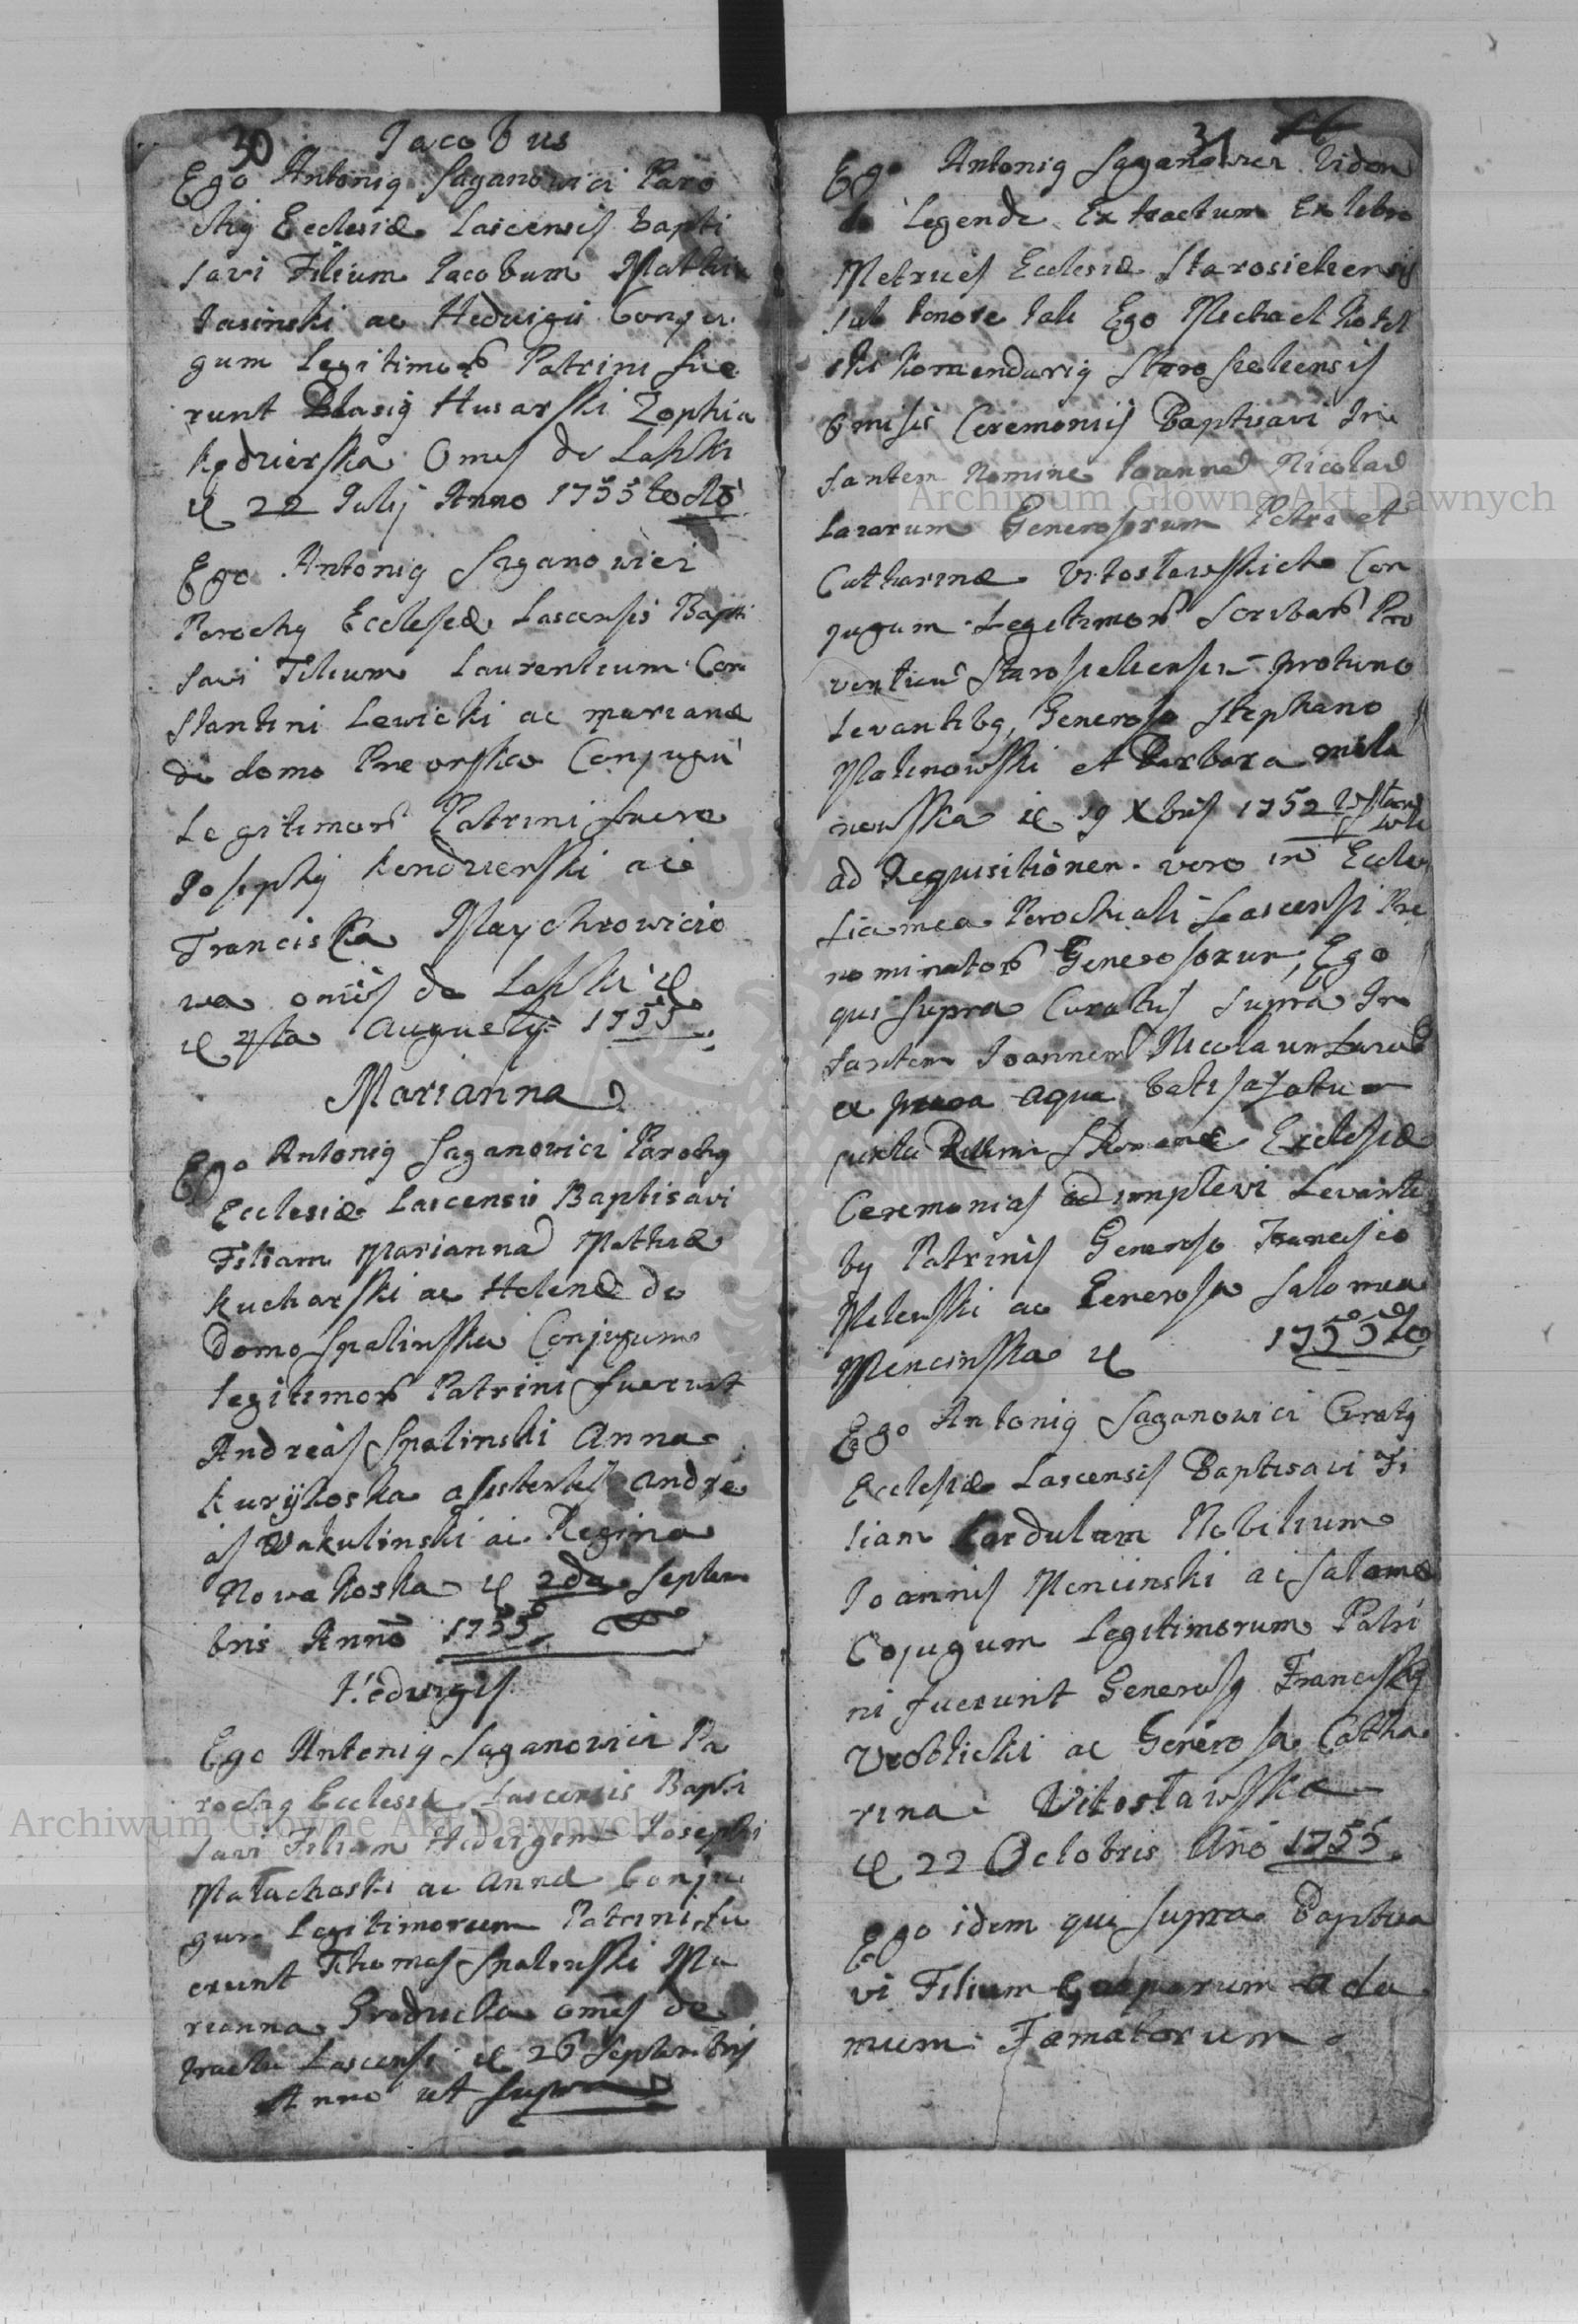 30 Jacobus
Ego Antonig Saganowicz Paro
chg Ecclesiæ Lascensis bapti
savi Filium Jacobum Mathiæ
Jasinski ac Hedvigis Conju
gum Legitimor Patrini fue
runt Blasig Husarski Zophia
Kędzierska Omes de Lasski
22 Julij Anno 1755
Ego Antonig Saganowicz
Parochg Ecclesiæ Lascensis Bapti
savi Filium Laurentium Con
stantini Lewicki ac marianæ
de domo Preorska Conjugu
Legitimor Patrini fuere
Josephg Kendzierski ac
Franciska Maychrowicio
wa omes de Lasski
Augusty 1755
Marianna
Ego Antonig Saganowicz Parochg
Ecclesiæ Lascensis Baptisavi
Filiam Mariannã Mathiæ
Kucharski ac Helenæ de
Domo Spalinska Conjugum
legitimor Patrini fuerunt
Andreas Spalinski Anna
Kuryłoska Andre
as Wakulinski ac Regina
Nowakoska 2da Septem
bris Anno 1755
Hedvigis
Ego Antonig Saganowicz Pa
rochg Ecclesiæ Lascensis Bapti
savi Filiam Hedvigem Josephi
Małachoski ac Annæ Conju
gum Legitimorum Patrini fu
erunt Thomas Spalinski Ma
rianna Groducka omes de
tractu Lascensi 26 Septembris
Anno ut supra
31
Ego Antonig Saganowicz Viden
Legendi Extractum Ex libro
Metrices Ecclesiæ Starosielcensis
sub tenore tali Ego Michael
Komendarig Starosielcensis
omisis Ceremoniis Baptisavi In
fantem Nomine Joannẽ Nicolaũ
Lazarum Generosorum Petri et
Catharinæ Vitosławskich Con
jugum Legitimor Pro
ventuu Starosielcensiu protunc
Levantibg Generoso Stephano
Malinowski et Barbara
19 Xbris 1752
ad Requisitionem vero in Eccle
sia mea Parochiali Lascensi Pre
nominator Generosorum, Ego
qui supra Curatus supra In
fantem Joannem Nicolaum
ex aqua
juxta Romanæ Ecclesiæ
Ceremonias adimplevi Levanti
bg Patrinis Generoso Francisco
Milewski ac Generosa Salomea
Mencinska 1755
Ego Antonig Saganowicz Curatg
Ecclesiæ Lascensis Baptisavi Fi
liam Cordulam Nobilium
Joannis Mencinski ac Salomeæ
Cojugum Legitimorum Patri
ni fuerunt Generosg Franciskg
Wroblicki ac Generosa Catha
rina Vitosławska
22 Octobris Ano 1755
Ego idem qui supra Baptisa
vi Filium Gasparum Ada
mum Famatorum
Archiwum Główne Akt Dawnych
Archiwum Główne Akt Dawnych